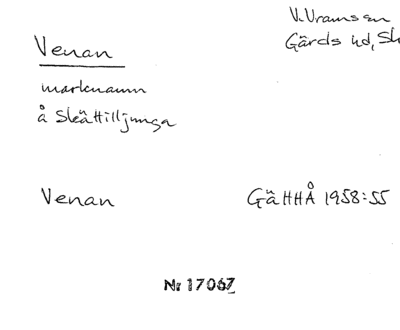 Venan
V. Vrams sn
Gärds hd, Sk
marknamn
å Skättilljunga
Venan
GäHHÅ 1958:55
Nr 17067